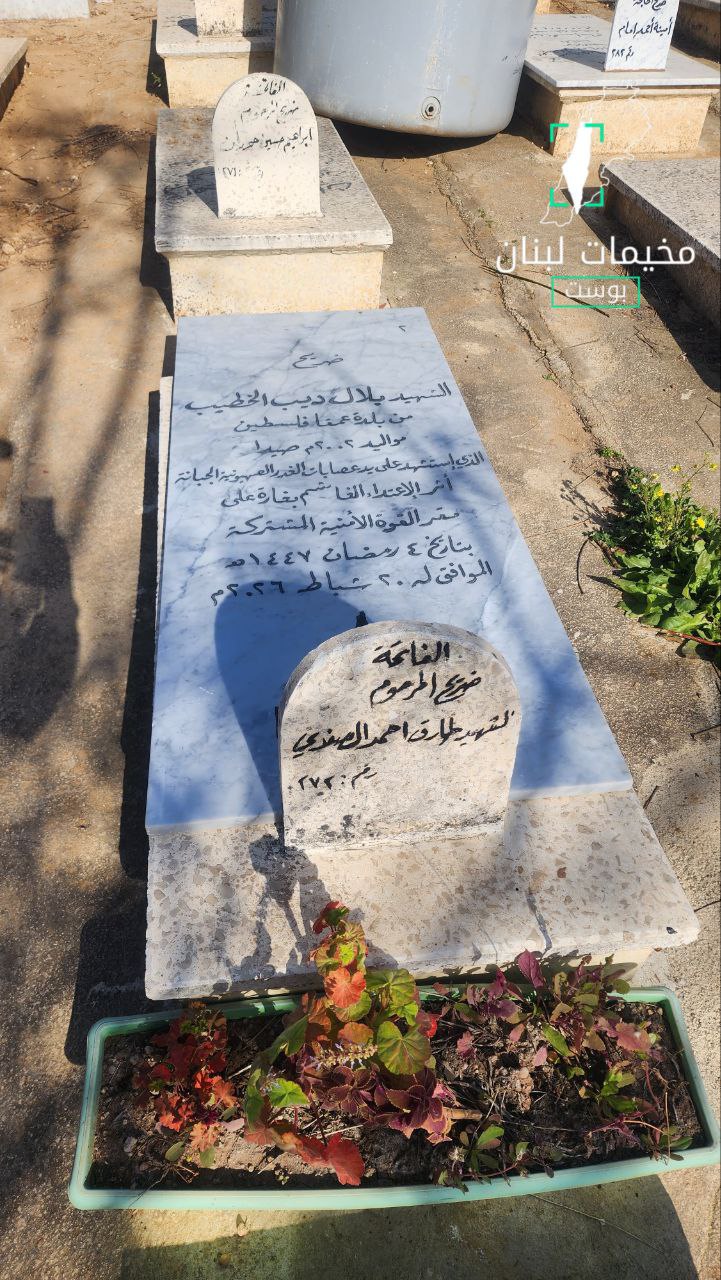 ضريح الحاجة
أمينة أحمد إمام
رقم ٢٨٢
الفاتحة
ضريح المرحوم
ابراهيم حسين حمدان
رقم: ٢٧١
مخيمات لبنان
بوست
٢
ضريح
الشهيد بلال ديب الخطيب
من بلدة عمقا فلسطين
مواليد ٢٠٠٢م صيدا
الذي إستشهد على يد عصابات الغدر الصهيونية الجبانة
أثر الإعتداء الغاشم بغارة على
مقر القوة الأمنية المشتركة
بتاريخ ٤ رمضان ١٤٤٧هـ
الموافق له ٢٠ شباط ٢٠٢٦م
الفاتحة
ضريح المرحوم
الشهيد طارق احمد الصفدي
رقم: ٢٧٢